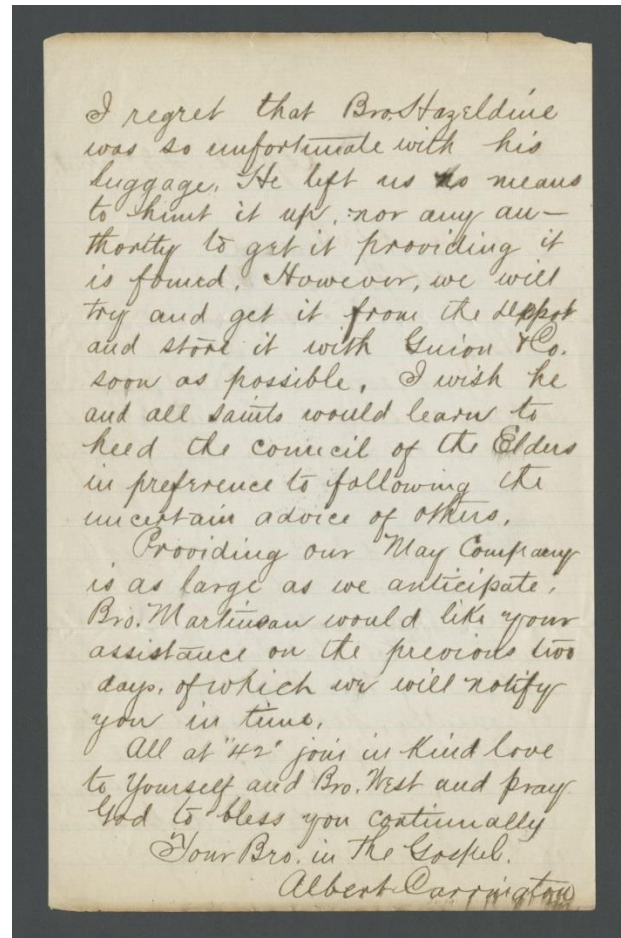 I regret that Bro. Hazeldine
was so unfortunate with his
luggage. He left us no means
to hunt it up, nor any au-
thority to get it providing it
is found. However, we will
try and get it from the deppot
and store it with Guion & Co.
soon as possible. I wish he
and all saints would learn to
heed the council of the Elders
in preference to following the
uncertain advice of others.
Providing our May Company
is as large as we anticipate,
Bro. Martinsan would like your
assistance on the previous two
days, of which we will notify
you in time.
All at "42" join in kind love
to Yourself and Bro. West and pray
God to bless you continually
Your Bro. in the Gospel.
Albert Carrington